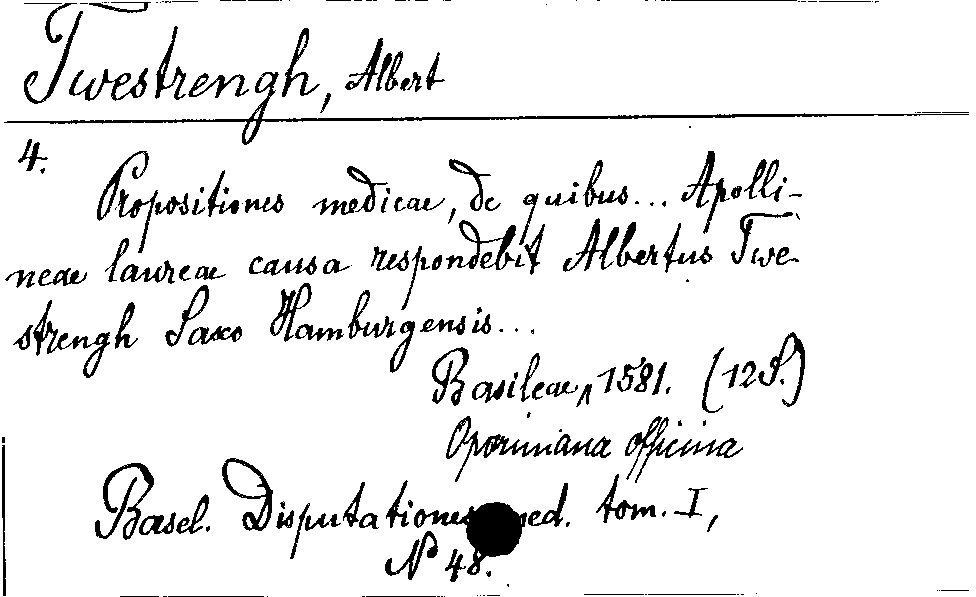 Twestrengh, Albert
4.
Propositiones medicae, de quibus... Apolli-
neae laureae causa respondebit Albertus Twe-
strengh Saxo Hamburgensis...
Basileae, 1581. (12 S.)
Oporiniana officina
Basel. Disputationes med. tom. I,
No 48.